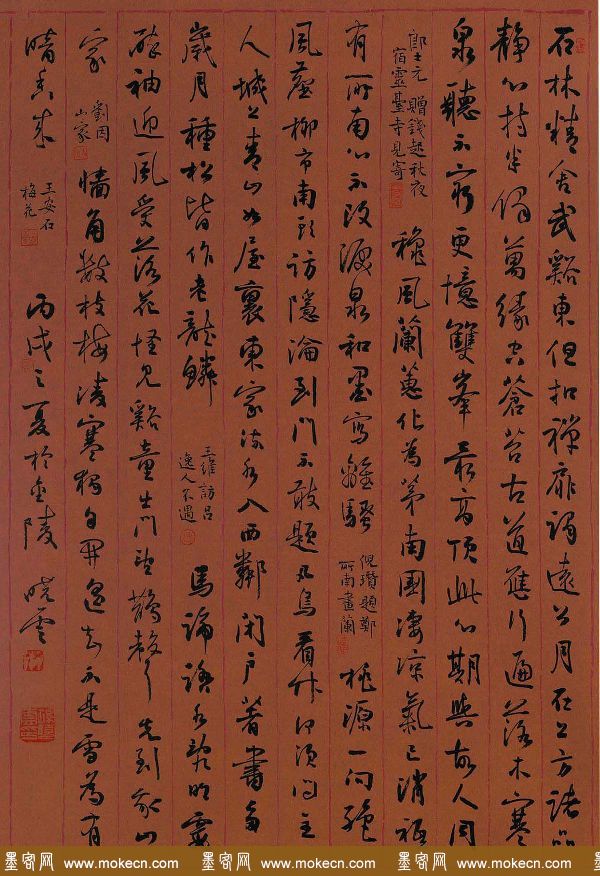 石林精舍武谿東但扣禪扉謁遠公月在上方諸品
靜心持半偈萬緣空蒼苔古道應行遍落木寒
泉聽不窮更憶雙峯最高頂此心期與故人同
郎士元 贈錢起秋夜
宿靈臺寺見寄
穐風蘭蕙化為茅南國淒涼氣已消祗
有所南心不改淚泉和墨寫離騷
倪瓚題鄭
所南畫蘭
桃源一向絕
風塵柳市南頭訪隱淪到門不敢題凡鳥看竹何須問主
人城上青山如屋裏東家流水入西鄰閉戶著書多
歲月種松皆作老龍鱗
王維訪呂
逸人不遇
馬蹄踏水亂明霞
醉袖迎風受落花怪見谿童出門望鵲聲先到我山
家
劉因
山家
牆角數枝梅凌寒獨自開遙知不是雪為有
暗香來
王安石
梅花
丙戌之夏於金陵 曉雲
墨客网 www.mokecn.com 墨客网 www.mokecn.com 墨客网 www.mokecn.com